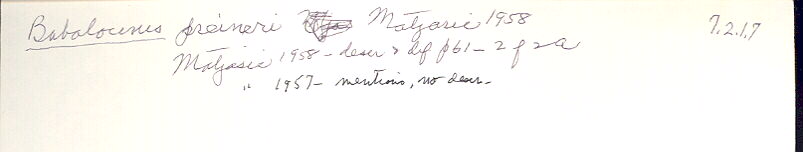 Bubalocerus preineri Matjasic 1958 7.2.1.7
Matjasic 1958 - descr & df p61 - 2 f 2a
" 1957 - mentions, no descr.